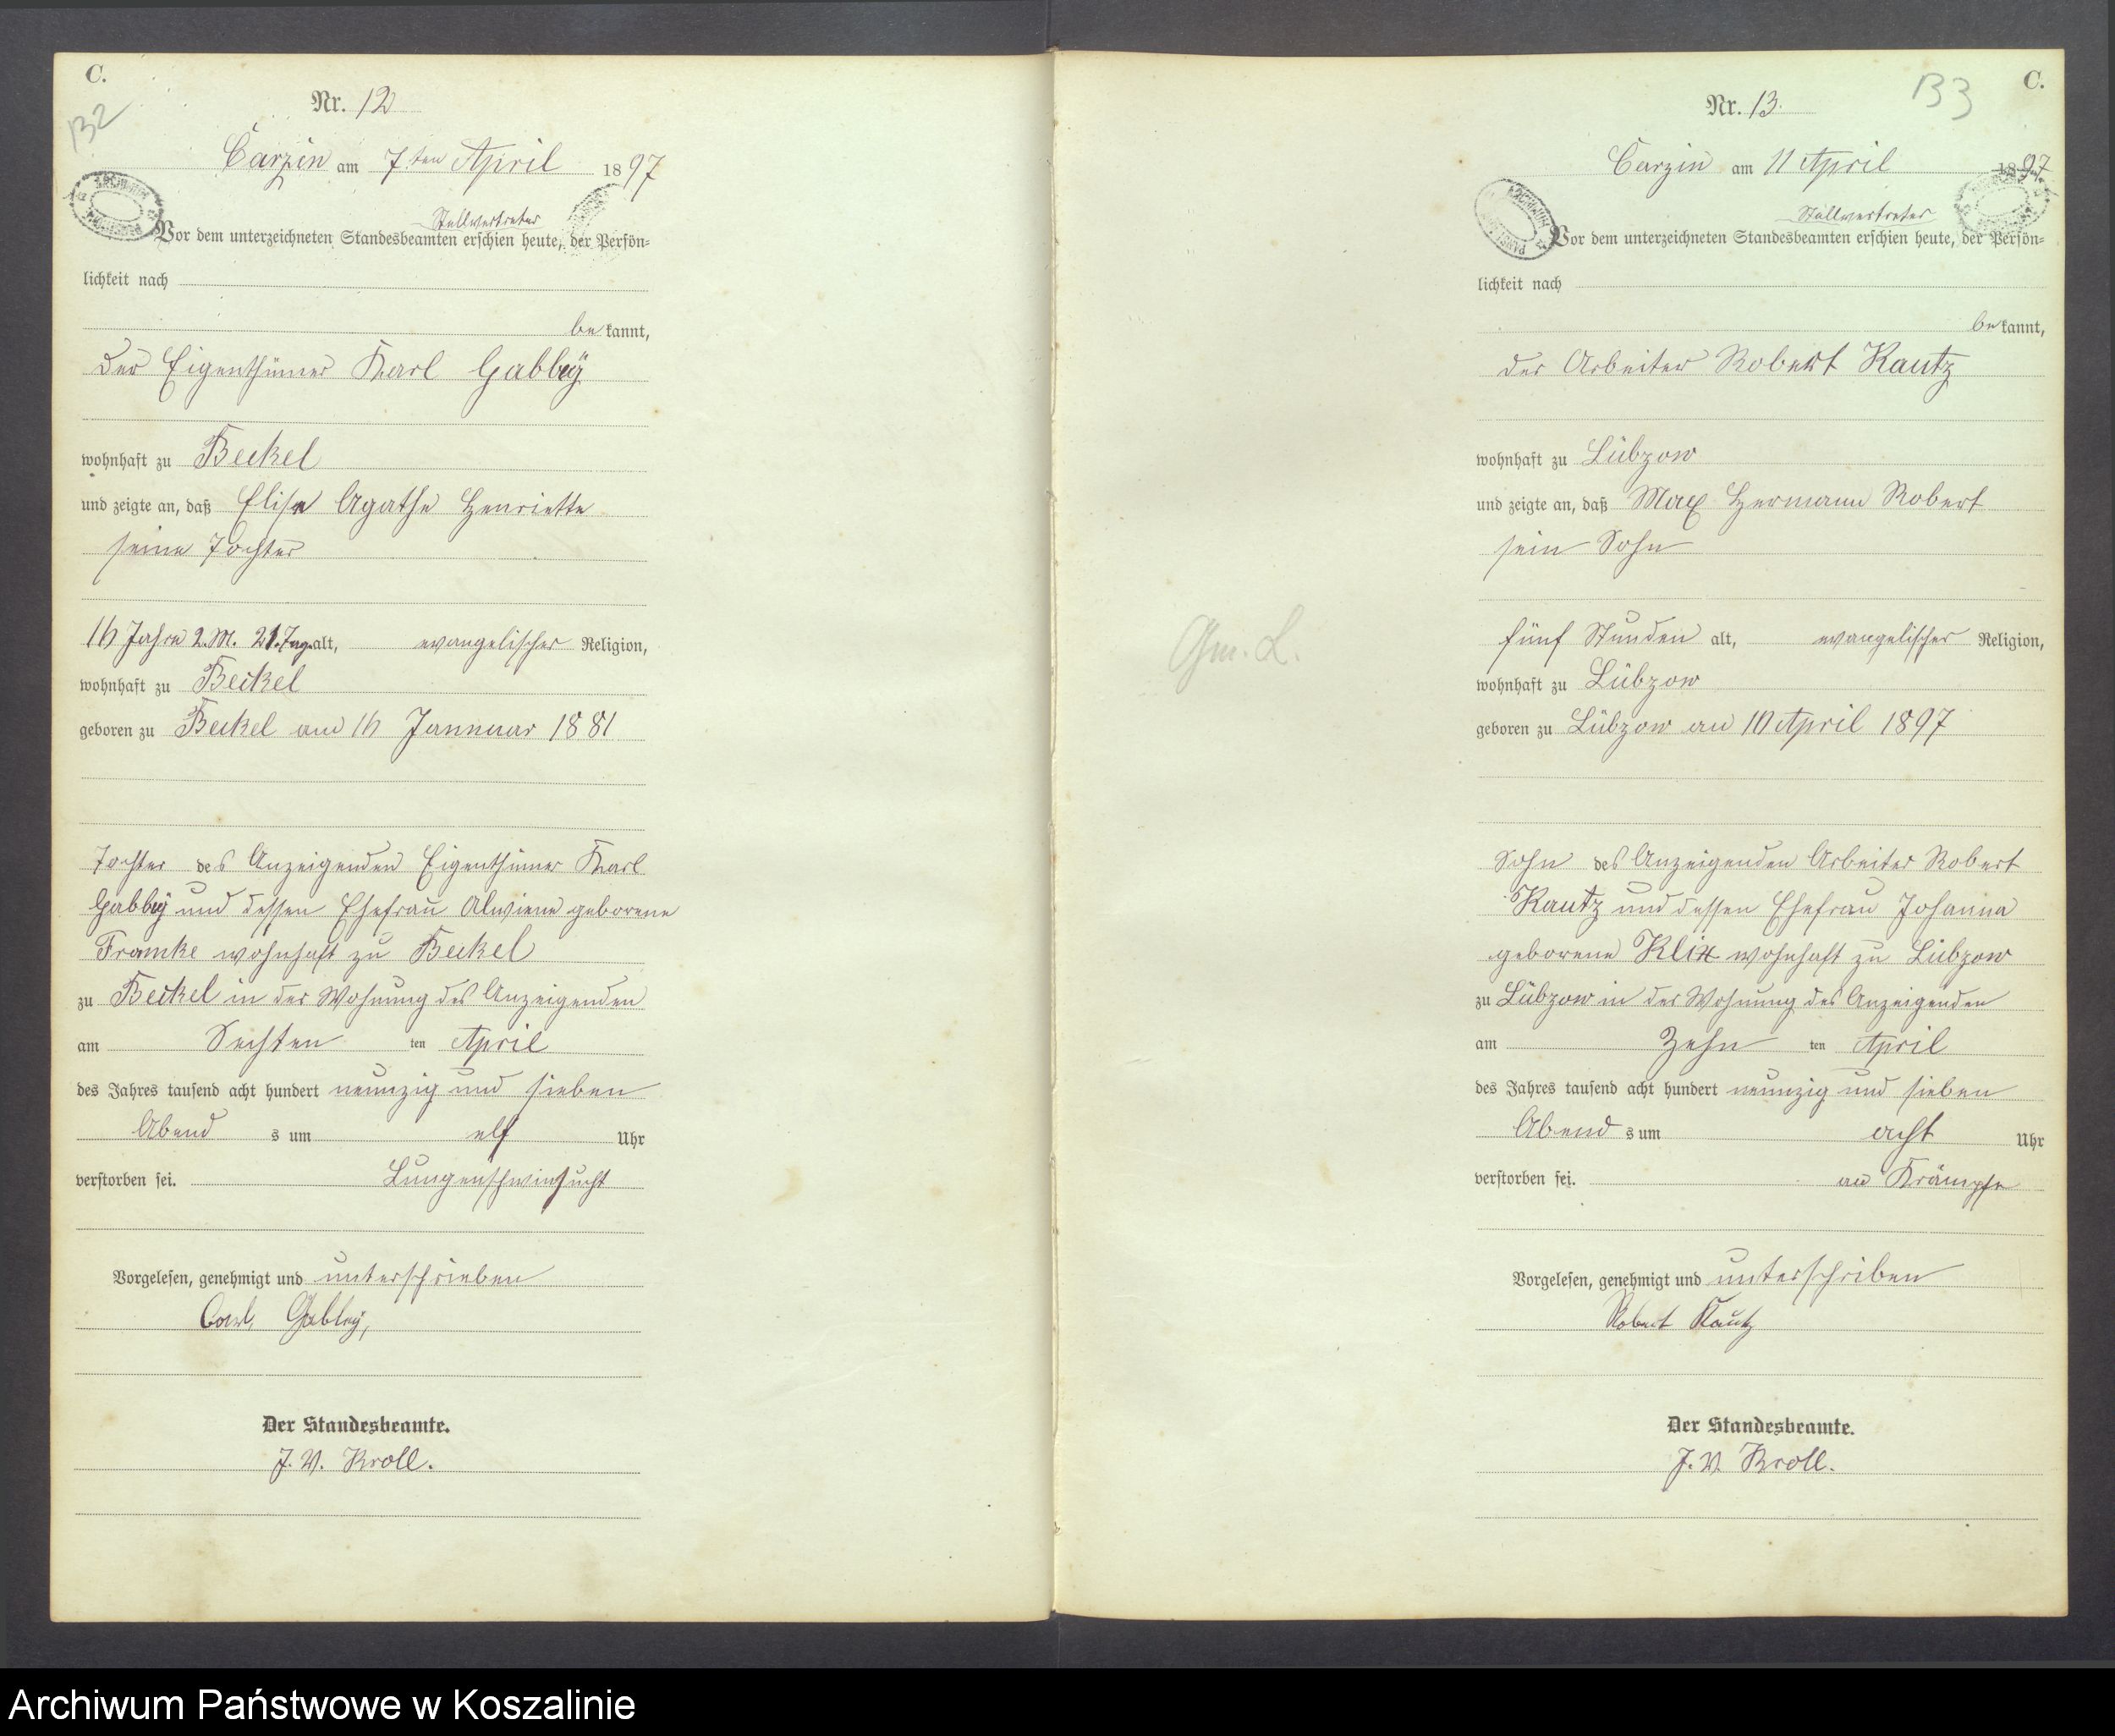 C.
132
Nr. 12
Carzin am 7ten April 1897
Stellvertreter
Vor dem unterzeichneten Standesbeamten erschien heute, der Persön=
lichkeit nach
be kannt,
der Eigenthümer Karl Gabbey
wohnhaft zu Beckel
und zeigte an, daß Elise Agathe Henriette
seine Tochter
16 Jahre 2. M. 21. Tag. alt, evangelischer Religion,
wohnhaft zu Beckel
geboren zu Beckel am 16 Jannuar 1881
Tochter des Anzeigenden Eigenthümer Karl
Gabbey und dessen Ehefrau Alwiene geborene
Franke wohnhaft zu Beckel
zu Beckel in der Wohnung des Anzeigenden
am Sechsten ten April
des Jahres tausend acht hundert neunzig und sieben
Abend s um elf Uhr
verstorben sei. Lungenschwinsucht
Vorgelesen, genehmigt und unterschrieben
Carl Gabbey,
Der Standesbeamte.
J. V. Kroll.
C.
133
Nr. 13.
Carzin am 11 April 1897.
Stellvertreter
Vor dem unterzeichneten Standesbeamten erschien heute, der Persön=
lichkeit nach
be kannt,
der Arbeiter Robert Kautz
wohnhaft zu Lübzow
und zeigte an, daß Max Hermann Robert
sein Sohn
fünf Stunden alt, evangelischer Religion,
wohnhaft zu Lübzow
geboren zu Lübzow am 10 April 1897
Sohn des Anzeigenden Arbeiter Robert
Kautz und dessen Ehefrau Johanna
geborene Klix wohnhaft zu Lübzow
zu Lübzow in der Wohnung des Anzeigenden
am Zehn ten April
des Jahres tausend acht hundert neunzig und sieben
Abend s um acht Uhr
verstorben sei. an Krämpfe
Vorgelesen, genehmigt und unterschriben
Robert Kautz
Der Standesbeamte.
J. V. Kroll.
Archiwum Państwowe w Koszalinie